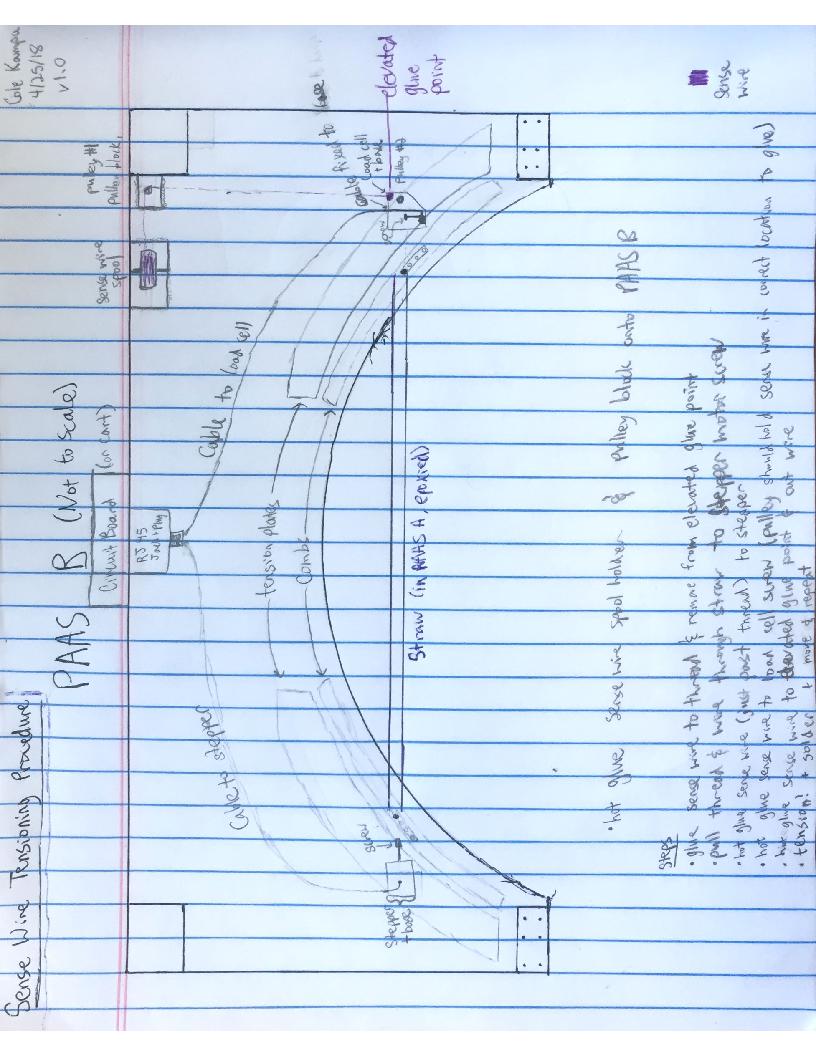 Sense Wire Tensioning Procedure
Cole Kampa
4/25/18
v1.0
PAAS B (Not to Scale)
Circuit Board
(on cart)
RJ45
Jack + Plug
sense wire
spool
pulley #1
pulley block
Cable to stepper
Cable to load cell
tension plates
Combs
cable fixed to
load cell
+ base
Pulley #2
screw
elevated
glue
point
Screw
Stepper
+ base
Straw (in PAAS A, epoxied)
sense
wire
• hot glue sense wire spool holder & pulley block onto PAAS B
Steps
• glue sense wire to thread & remove from elevated glue point
• pull thread & wire through straw to stepper motor screw
• hot glue sense wire (just past thread) to stepper
• hot glue sense wire to load cell screw (pulley should hold sense wire in correct location to glue)
• hot glue sense wire to elevated glue point & cut wire
• tension! + solder + move & repeat